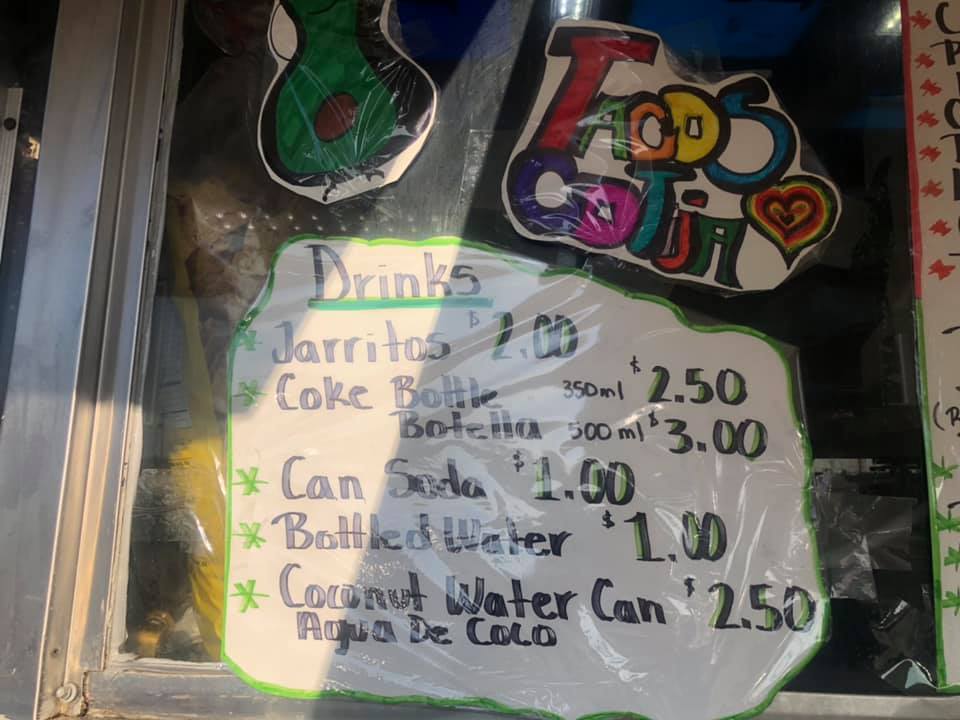 TACOS
COTIJA
Drinks
* Jarritos $2.00
* Coke Bottle 350ml $2.50
Botella 500 ml $3.00
* Can Soda $1.00
* Bottled Water $1.00
* Coconut Water Can $2.50
Agua De Coco